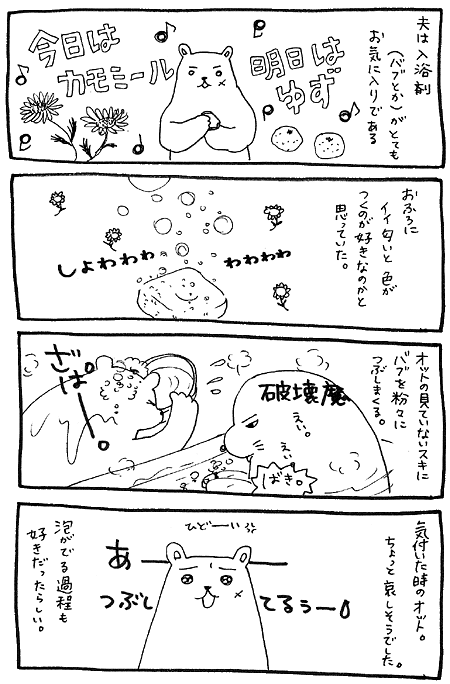 夫は入浴剤
(バブとか)がとても
お気に入りである
明日は
ゆず
今日は
カモミール
おふろに
イイ匂いと色が
つくのが好きなのかと
思っていた。
しょわわわ
わわわわ
オットの見ていないスキに
バブを粉々に
つぶしまくる。
破壊魔
えい。
えい。
ばき。
ざぱーー。
気付いた時のオット。
ちょっと哀しそうでした。
ひどーーい
あーーー
つぶしてるぅー
泡がでる過程も
好きだったらしい。